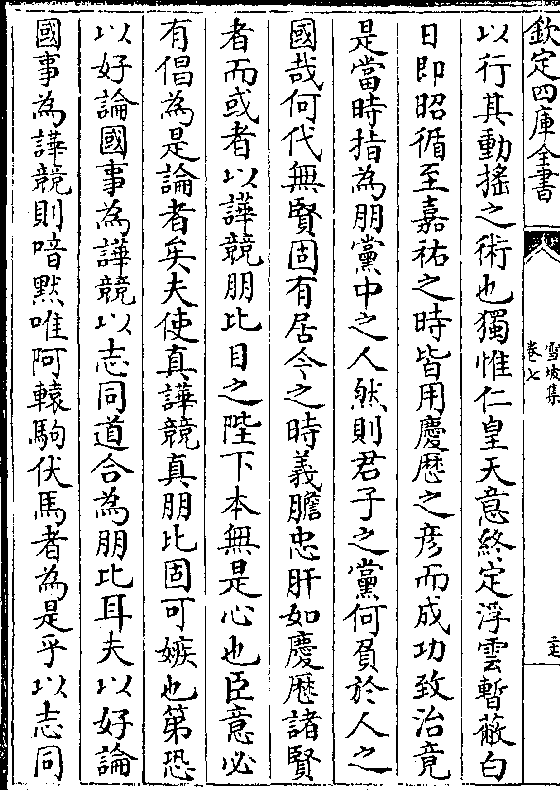 欽定四庫全書
雪坡集
卷七
以行其動搖之術也獨惟仁皇天意終定浮雲暫蔽白
日即昭循至嘉祐之時皆用慶歷之彦而成功致治竟
是當時指為朋黨中之人然則君子之黨何負於人之
國哉何代無賢固有居今之時義膽忠肝如慶歷諸賢
者而或者以譁競朋比目之陛下本無是心也臣意必
有倡為是論者矣夫使真譁競真朋比固可嫉也第恐
以好論國事為譁競以志同道合為朋比耳夫以好論
國事為譁競則喑默唯阿轅駒伏馬者為是乎以志同